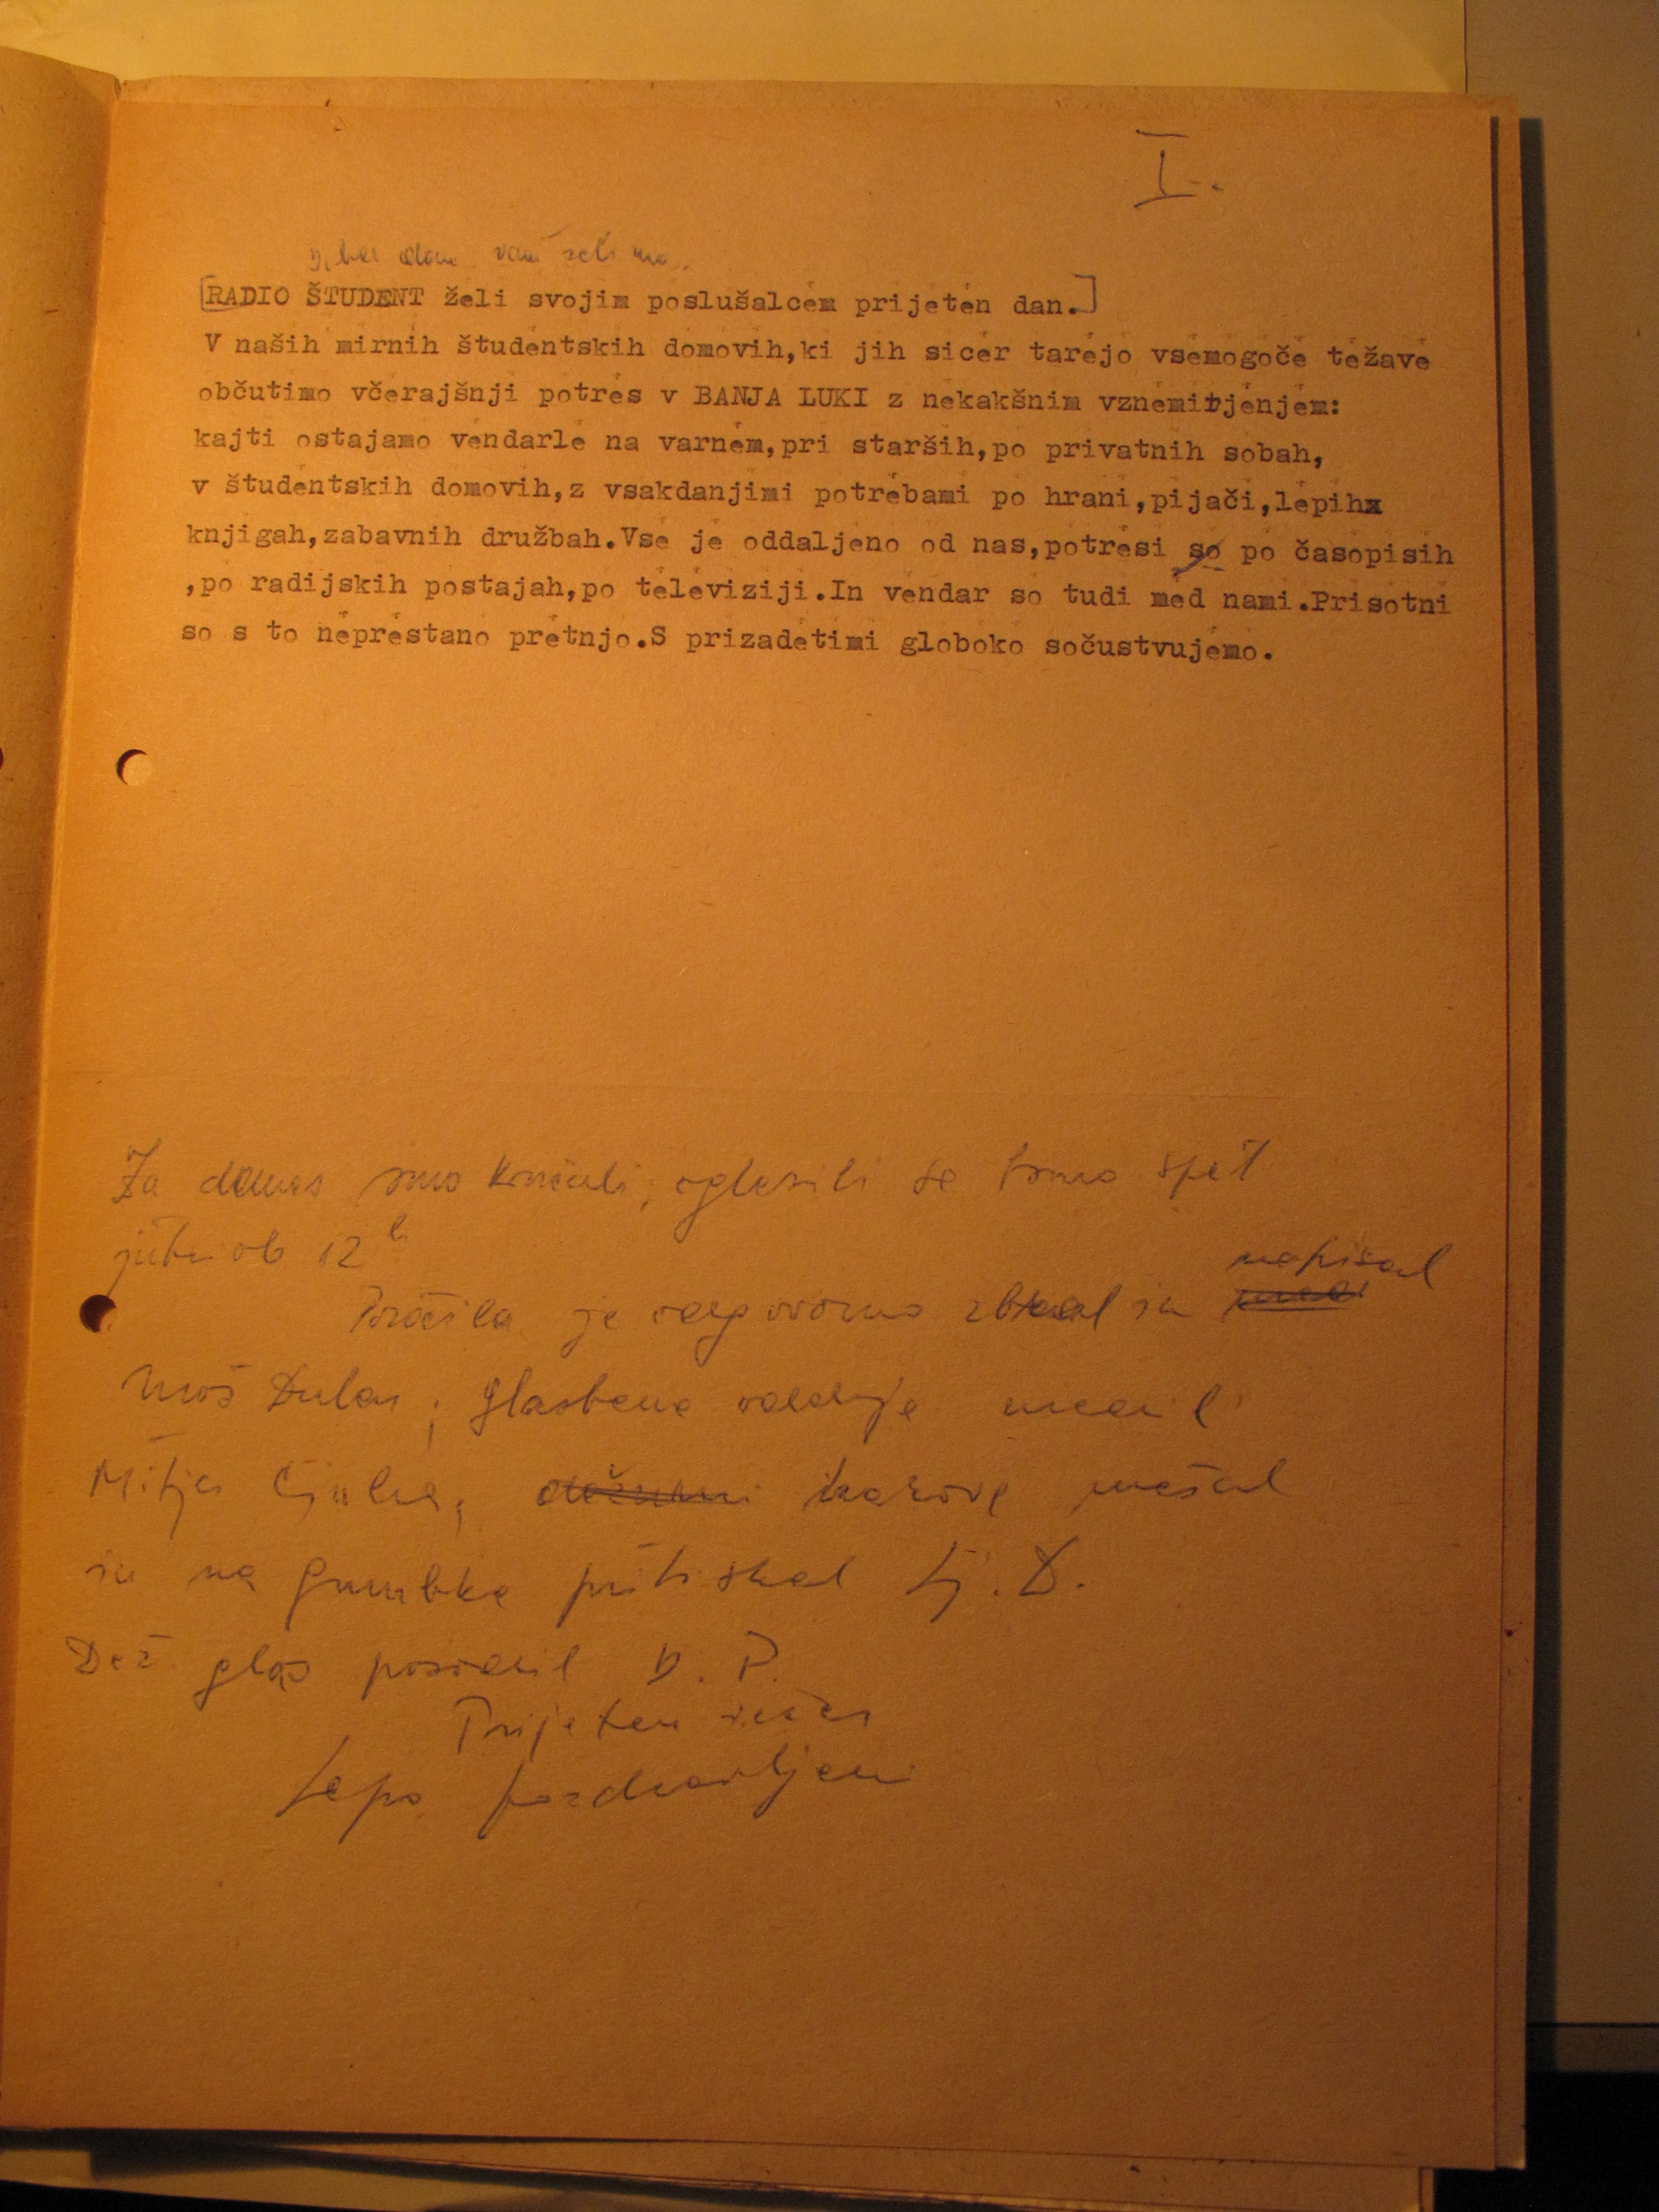 I.
dan vam želimo.
[RADIO ŠTUDENT želi svojim poslušalcem prijeten dan.]
V naših mirnih študentskih domovih,ki jih sicer tarejo vsemogoče težave
občutimo včerajšnji potres v BANJA LUKI z nekakšnim vznemirjenjem:
kajti ostajamo vendarle na varnem,pri starših,po privatnih sobah,
v študentskih domovih,z vsakdanjimi potrebami po hrani,pijači,lepihx
knjigah,zabavnih družbah.Vse je oddaljeno od nas,potresi so po časopisih
,po radijskih postajah,po televiziji.In vendar so tudi med nami.Prisotni
so s to neprestano pretnjo.S prizadetimi globoko sočustvujemo.
Za danes smo končali, oglasili se bomo spet
jutri ob 12h
napisal
Poročila je odgovorno zbral in
glasbene oddaje
Mitja dežurni kazove mešal
in na gumbke pritiskal Lj. D.
Dež. glas posodil D. P.
Prijeten večer
Lepo pozdravljeni